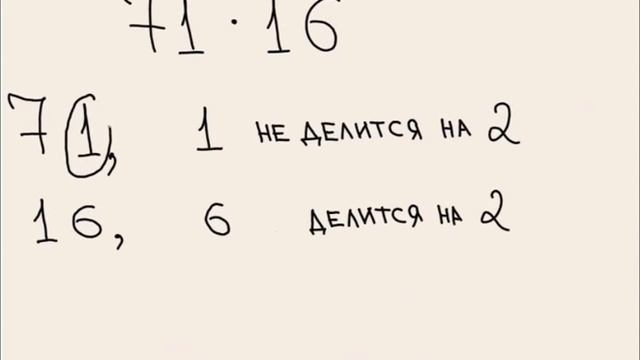 71 · 16
71, 1 не делится на 2
16, 6 делится на 2